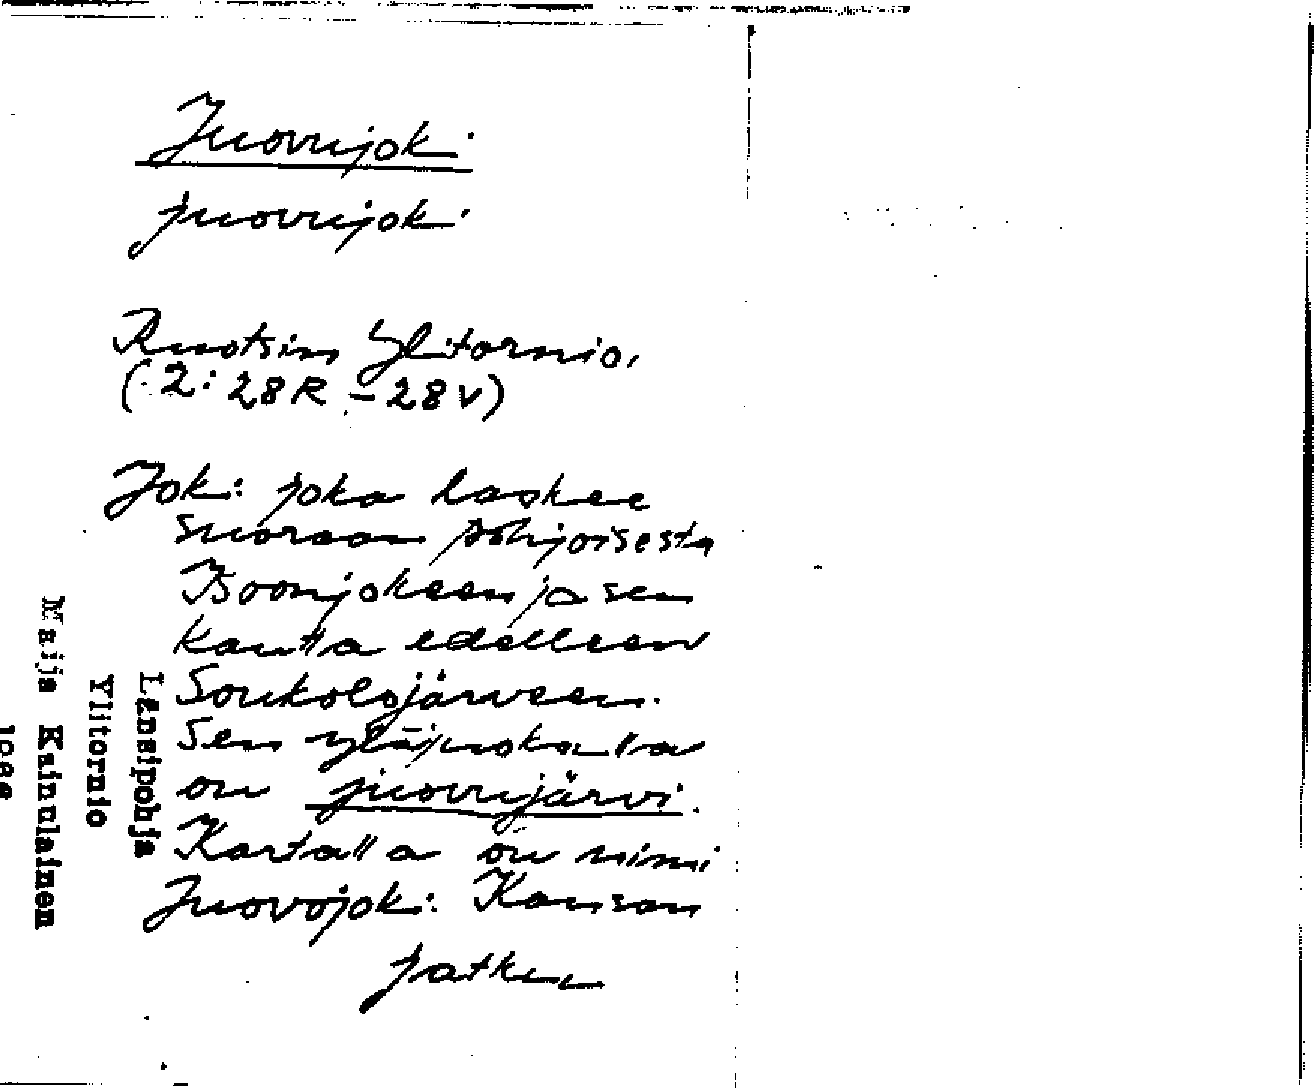 Juovujoki
juovujoki
Ruotsin Ylitornio.
(2: 28 R - 28 V)
Joki joka laskee
suoraan pohjoisesta
Isoonjokeen ja sen
kautta edelleen
Soukolojärveen.
Sen yläjuoksulla
on juovujärvi.
Kartalla on nimi
Juovojoki. Kansan
jatkuu
Länsipohja
Ylitornio
Maija Kainulainen